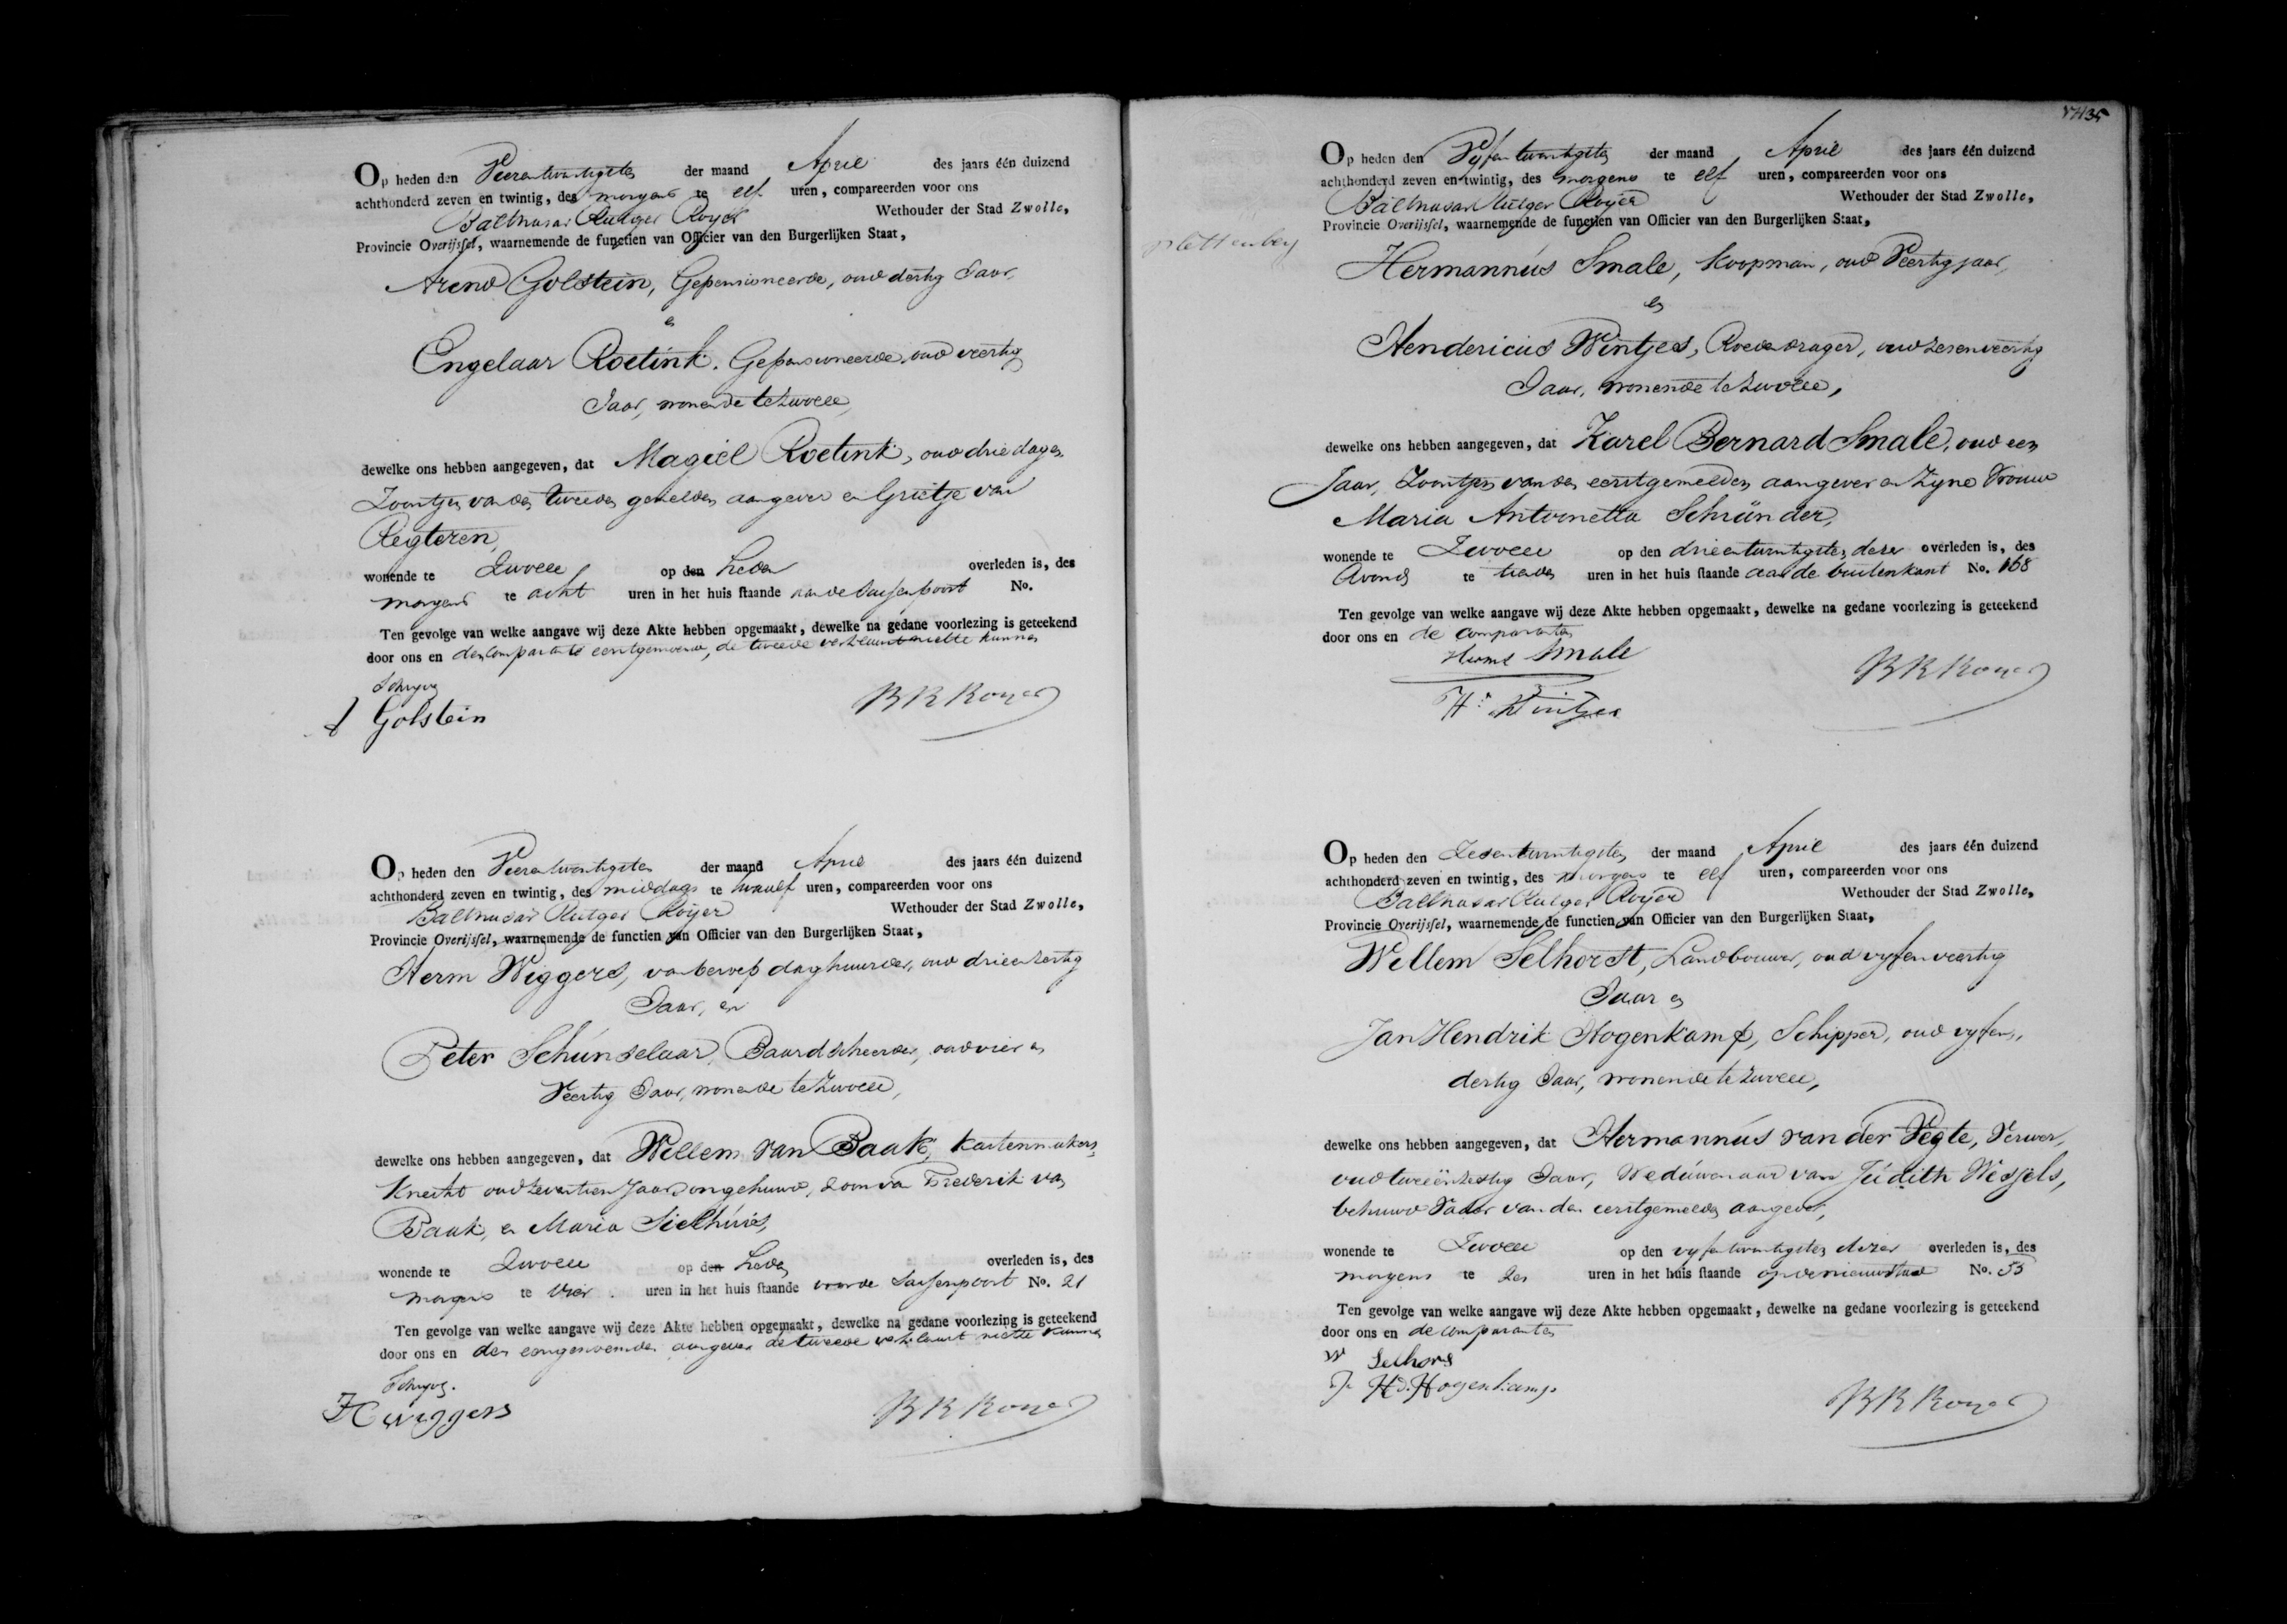 Op heden den Vierentwintigsten der maand April des jaars één duizend
achthonderd zeven en twintig, des morgens te elf uren, compareerden voor ons
Balthasar Rutger Royer Wethouder der Stad Zwolle,
Provincie Overijssel, waarnemende de functien van Officier van den Burgerlijken Staat,
Arend Golstein, Gepensioneerde, oud dertig Jaar,
en
Engelaar Roetink, Gepensioneerde, oud veertig
Jaar, wonende te Zwolle,
dewelke ons hebben aangegeven, dat Magiel Roetink, oud drie dagen
Zoontjen van den tweeden gemelden aangever en Grietje van
Regteren,
wonende te Zwolle op den heden overleden is, des
morgens te acht uren in het huis staande aan de Sassenpoort No.
Ten gevolge van welke aangave wij deze Akte hebben opgemaakt, dewelke na gedane voorlezing is geteekend
door ons en den Comparant eerstgenoemd, de tweede verklaart niet te kunnen
Schryven
A Golstein BRRoyer
Op heden den Vierentwintigsten der maand April des jaars één duizend
achthonderd zeven en twintig, des middags te twaalf uren, compareerden voor ons
Balthasar Rutger Royer Wethouder der Stad Zwolle,
Provincie Overijssel, waarnemende de functien van Officier van den Burgerlijken Staat,
Herm Wiggers, van beroep daghuurder, oud drieenzestig
Jaar, en
Peter Schúnselaar, Baardscheerder, oud vier en
Veertig Jaar, wonende te Zwolle,
dewelke ons hebben aangegeven, dat Willem van Baak, Kastenmakers
Knecht oud zeventien Jaar ongehuwd, zoon van Frederik van
Baak, en Maria Sielhúis,
wonende te Zwolle op den heden overleden is, des
morgens te vier uren in het huis staande voor de Sassenpoort No. 21
Ten gevolge van welke aangave wij deze Akte hebben opgemaakt, dewelke na gedane voorlezing is geteekend
door ons en den eerstgenoemden aangever de tweede verklaart niet te kunnen
Schryven.
H Wiggers BRRoyer
Op heden den Vyfentwintigsten der maand April des jaars één duizend
achthonderd zeven en twintig, des morgens te elf uren, compareerden voor ons
Balthasar Rutger Royer Wethouder der Stad Zwolle,
Provincie Overijssel, waarnemende de functien van Officier van den Burgerlijken Staat,
plettenberg
Hermannús Smale, Koopman, oud Veertig jaar,
en
Hendericús Wintjes, Roededrager, oud zesenveertig
Jaar, wonende te Zwolle,
dewelke ons hebben aangegeven, dat Karel Bernard Smale, oud een
Jaar, Zoontjen van den eerstgemelden aangever en Zyne Vrouw
Maria Antoinetta Schründer,
wonende te Zwolle op den drieentwintigsten dezer overleden is, des
Avonds te tien uren in het huis staande aan de buitenkant No. 168
Ten gevolge van welke aangave wij deze Akte hebben opgemaakt, dewelke na gedane voorlezing is geteekend
door ons en de Comparanten
Herms Smale BRRoyer
Hs Wintjes
Op heden den Zesentwintigsten der maand April des jaars één duizend
achthonderd zeven en twintig, des morgens te elf uren, compareerden voor ons
Balthasar Rutger Royer Wethouder der Stad Zwolle,
Provincie Overijssel, waarnemende de functien van Officier van den Burgerlijken Staat,
Willem Selhorst, Landbouwer, oud vyfenveertig
Jaar en
Jan Hendrik Hogenkamp, Schipper, oud vyfen
dertig Jaar, wonende te Zwolle,
dewelke ons hebben aangegeven, dat Hermannús van der Vegte, Verwer,
oud tweeënzestig Jaar, Wedúwenaar van Júdith Wessels,
behuwd Vader van den eerstgemelden aangever,
wonende te Zwolle op den vyfentwintigsten dezer overleden is, des
morgens te zes uren in het huis staande op de nieuwstad No. 53
Ten gevolge van welke aangave wij deze Akte hebben opgemaakt, dewelke na gedane voorlezing is geteekend
door ons en de Comparanten
W Selhors
Hd. Hogenkamp BRRoyer